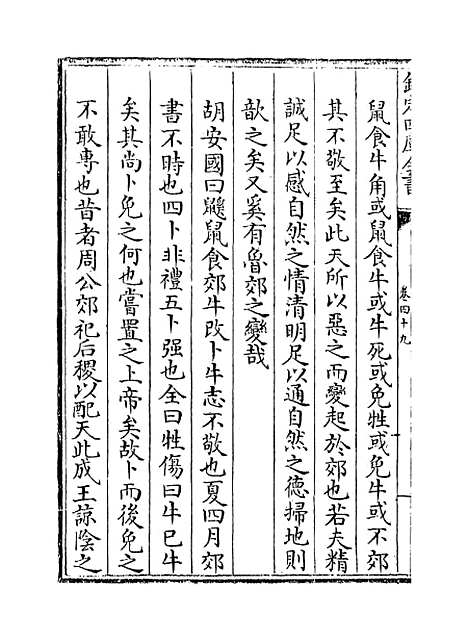 欽定四庫全書
卷四十九
鼠食牛角或鼠食牛或牛死或免牲或免牛或不郊
其不敬至矣此天所以惡之而變起於郊也若夫精
誠足以感自然之情清明足以通自然之德掃地則
歆之矣又奚有魯郊之變哉
胡安國曰鼷鼠食郊牛改卜牛志不敬也夏四月郊
書不時也四卜非禮五卜强也全曰牲傷曰牛已牛
矣其尚卜免之何也嘗置之上帝矣故卜而後免之
不敢專也昔者周公郊祀后稷以配天此成王諒陰之